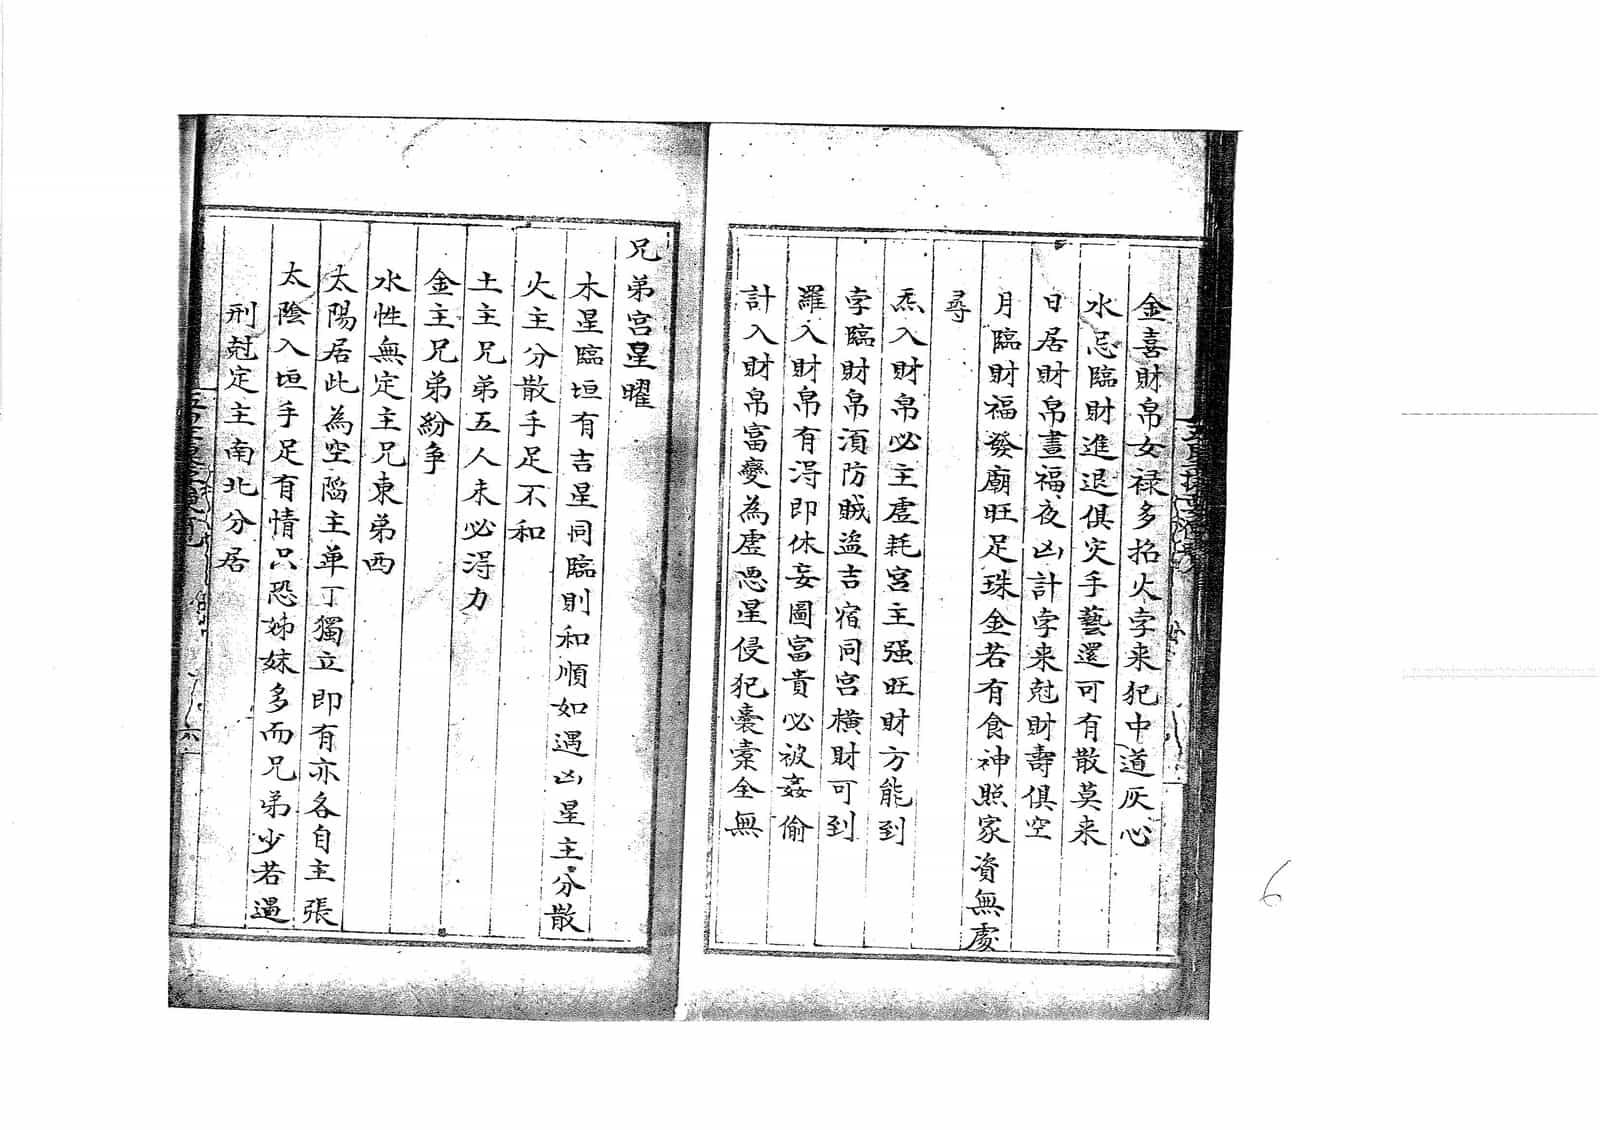 金喜財帛女禄多招火孛来犯中道灰心
水忌臨財進退俱灾手藝還可有散莫来
日居財帛晝福夜凶計孛来尅財壽俱空
月臨財福發廟旺足珠金若有食神照家資無處
尋
炁入財帛必主虚耗宮主强旺財方能到
孛臨財帛湏防賊盗吉宿同宫横財可到
羅入財帛有淂即休妄圖富貴必被姦偷
計入財帛富變為虚惡星侵犯囊橐全無
兄弟宮星曜
木星臨垣有吉星同臨則和順如遇凶星主分散
火主分散手足不和
土主兄弟五人未必淂力
金主兄弟紛争
水性無定主兄東弟西
太陽居此為空陷主单丁獨立即有亦各自主張
太陰入垣手足有情只恐姊妹多而兄弟少若遇
刑尅定主南北分居
6